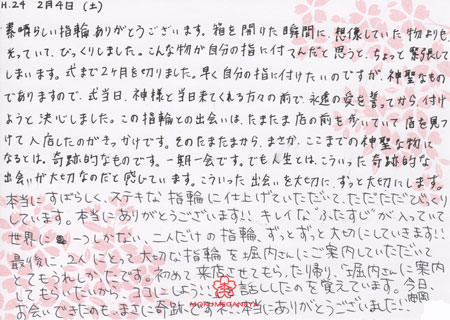 H.24 2月4日(土)
素晴らしい指輪ありがとうございます。箱を開けた瞬間に、想像していた物よりも、
光っていて、びっくりしました。こんな物が自分の指に付てんだと思うと、ちょっと緊張して
しまいます。式まで2ヶ月を切りました。早く自分の指に付けたいのですが、神聖なもの
でありますので、式当日、神様と当日来てくれる方々の前で、永遠の愛を誓ってから、付け
ようと決心しました。この指輪との出会いは、たまたま店の前を歩いていて店を見つ
けて入店したのがきっかけです。そのたまたまから、まさか、ここまでの神聖な物に
なるとは、奇跡的なものです。一期一会です。でも人生とは、こういった奇跡的な
出会いが大切なのだと感じています。こういった出会いを大切に、ずっと大切にします。
本当にすばらしく、ステキな指輪に仕上げていただいて、ただただびっくり
しています。本当にありがとうございます!!キレイな"ふたすじ"が入っていて
世界に一つしかない、二人だけの指輪、ずっとずっと大切にしていきます!!
最後に、2人にとって大切な指輪を堀内さんにご案内していただいて
とてもうれしかったです。初めて来店させてもらった帰り、「堀内さんに案内
してもらいたいから、ココにしよう!!」と話ししたのを覚えています。今日、
お会いできたのも、まさに奇跡ですネ!!本当にありがとうございました!!
MOKUMEGANEYA